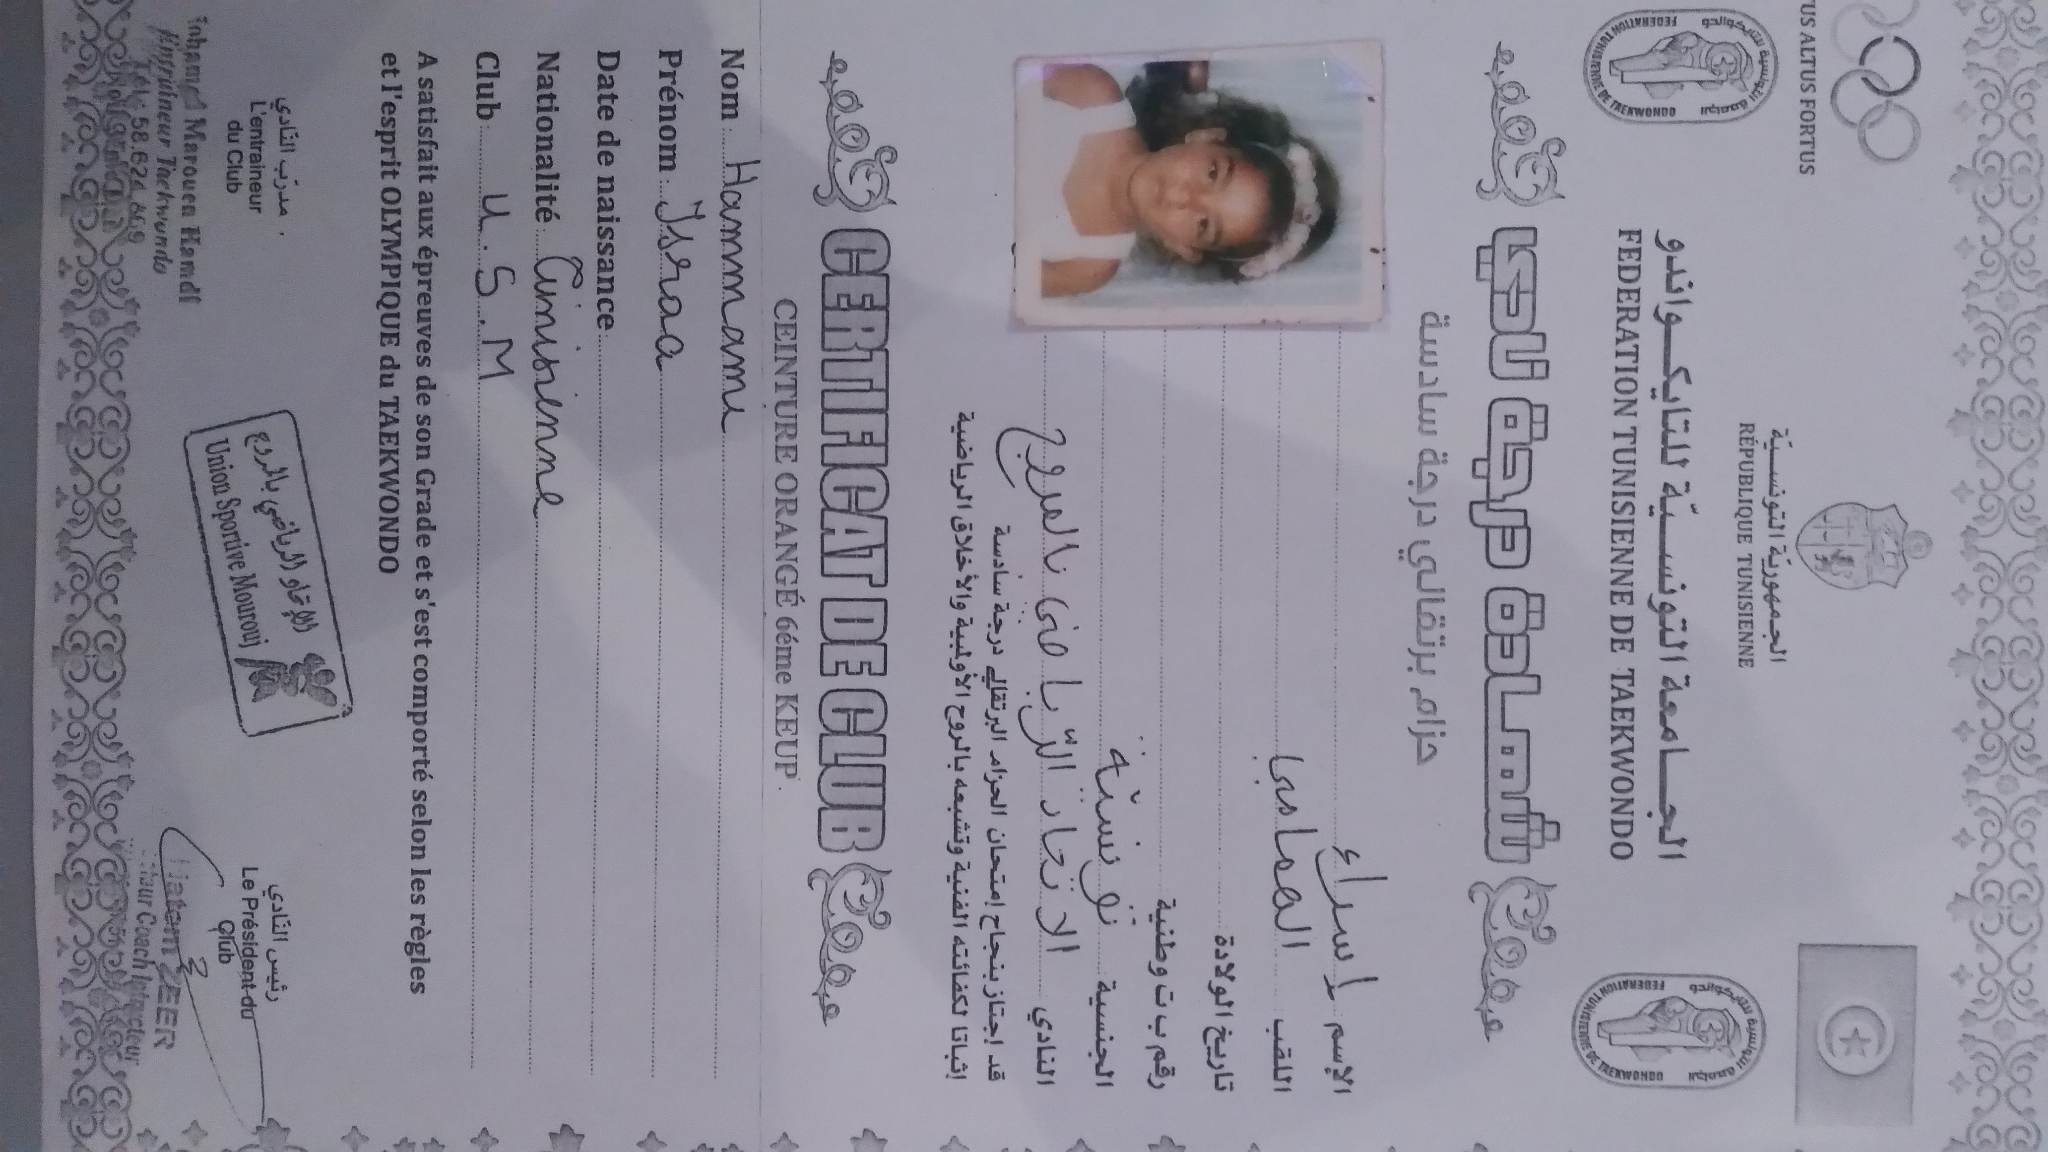 US ALTUS FORTUS
الجمهورية التونسيّة
RÉPUBLIQUE TUNISIENNE
الجـامعة التونسيّة للتايكـواندو
FEDERATION TUNISIENNE DE TAEKWONDO
FEDERATION TUNISIENNE DE TAEKWONDO
FEDERATION TUNISIENNE DE TAEKWONDO
شهـادة درجة نادي
حزام برتقالي درجة سادسة
الإسم : إسراء
اللقب : الهمامي
تاريخ الولادة
رقم ب ت وطنية
الجنسية : تونسيّة
النادي : الاتحاد الرّياضي بالمروج
قد إجتاز بنجاح إمتحان الحزام البرتقالي درجة سادسة
إثباتا لكفائته الفنية وتشبعه بالروح الأولمبية والأخلاق الرياضية
CERTIFICAT DE CLUB
CEINTURE ORANGÉ 6éme KEUP
Nom : Hammami
Prénom : Israa
Date de naissance :
Nationalité : Tunisienne
Club : U.S.M
A satisfait aux épreuves de son Grade et s'est comporté selon les règles
et l'esprit OLYMPIQUE du TAEKWONDO
مدرّب النّادي
L'entraineur
du Club
Marouen Hamdi
Taekwondo
الإتحاد الرياضي بالمروج
Union Sportive Mourouj
رئيس النّادي
Le Président du
Club
Coach